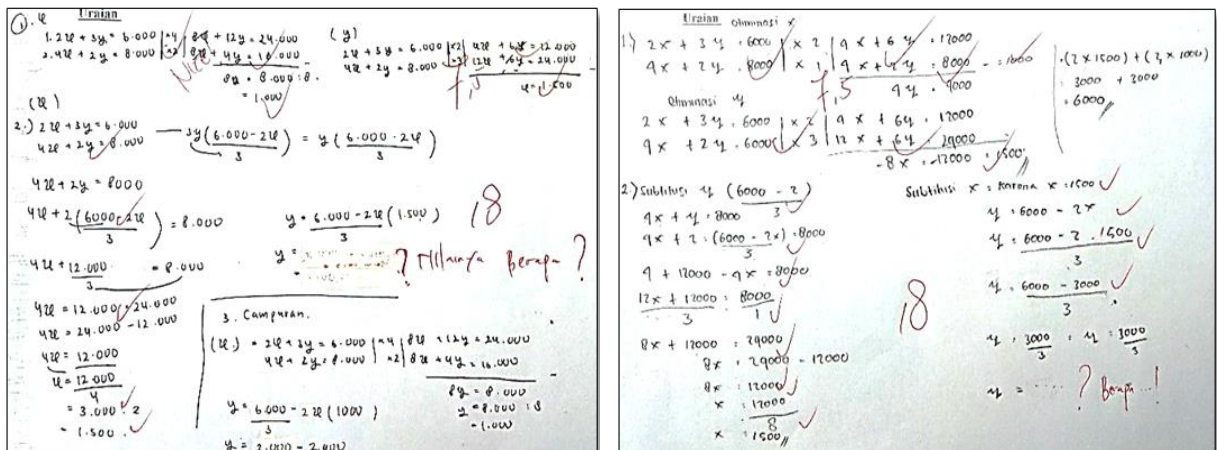 Uraian
1. 2x + 3y = 6.000 | x4 | 8x + 12y = 24.000
2. 4x + 2y = 8.000 | x2 | 8x + 4y = 16.000
8y = 8.000 : 8
= 1.000
(y)
2x + 3y = 6.000 | x2 | 4x + 6y = 12.000
4x + 2y = 8.000 | x3 | 12x + 6y = 24.000
x = 1.500
7,5
(x)
2.) 2x + 3y = 6.000
4x + 2y = 8.000
3y (6.000 - 2x) / 3 = y (6.000 - 2x) / 3
4x + 2y = 8000
4x + 2 (6000 - 2x) / 3 = 8.000
4x + 12.000 / 3 = 8.000
4x = 12.000 = 24.000
4x = 24.000 - 12.000
4x = 12.000
x = 12.000 / 4
= 3.000 : 2
= 1.500
y = 6.000 - 2x (1.500) / 3
y =
18
? Nilainya Berapa ?
3. Campuran.
(x.) = 2x + 3y = 6.000 | x4 | 8x + 12y = 24.000
4x + 2y = 8.000 | x2 | 8x + 4y = 16.000
8y = 8.000
y = 8.000 : 8
= 1.000
y = 6.000 - 2x (1000) / 3
y = 2.000 - 2.000
Uraian
Eliminasi x
1.) 2x + 3y = 6000 | x 2 | 4x + 6y = 12000
4x + 2y = 8000 | x 1 | 4x + 2y = 8000
4y = 4000
= 1000
7,5
Eliminasi y
2x + 3y = 6000 | x 2 | 4x + 6y = 12000
4x + 2y = 6000 | x 3 | 12x + 6y = 24000
-8x = -12000 = 1500
(2 x 1500) + (3 x 1000)
= 3000 + 3000
= 6000
2.) Subtitusi y (6000 - 2) / 3
4x + y = 8000
4x + 2 = (6000 - 2x) / 3 = 8000
4 + 12000 - 4x = 8000
12x + 12000 / 3 = 8000 / 1
8x + 12000 = 24000
8x = 24000 - 12000
8x = 12000
x = 12000 / 8
x = 1500
18
Subtitusi x = Karena x = 1500
y = 6000 - 2x
y = 6000 - 2 . 1500 / 3
y = 6000 - 3000 / 3
y = 3000 / 3 = y = 3000 / 3
y = ..... ? Berapa...!